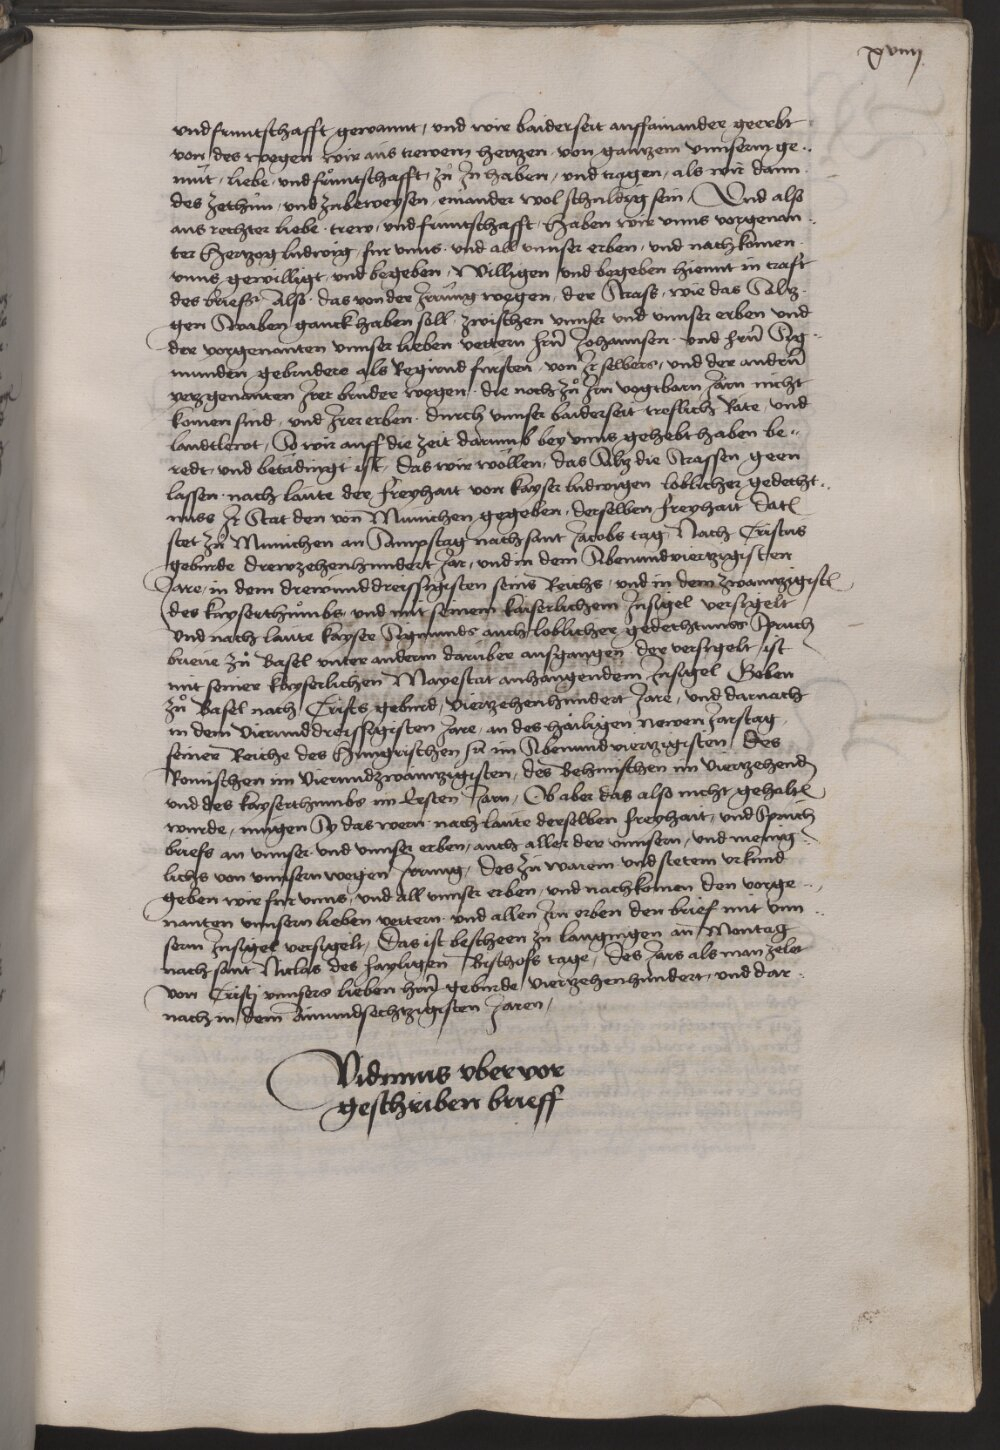 xviiij
vnd fruntschafft gewannt, vnd wir baiderseit auffainander geerbt
von des wegen wir aus trewem hertzen von gantzem vnnserm ge..
müt, liebe vnd früntschafft, zů Jn haben, vnd tragen, als wir dann
des zethün, vnd zubeweysen, einander wol schuldig sein, Vnd also
aus rechter liebe, trew, vnd früntschafft, Haben wir vnns vorgenan..
ter Hertzog ludwig, für vnns, vnd all vnnser erben, vnd nachkomen
vnns gewilligt, vnd begeben, Willigen vnd begeben hiemit in craft
des briefs, Also, das von der Jrrung wegen, der Strass, wie das Saltz
gen Swaben ganck haben soll, zwischen vnnser vnd vnnser erben vnd
der vorgenanten vnnser lieben vettern hern Johannsen, vnd hern Sig..
munden gebrudere als Regirnd fürsten, von Jr selbers, vnd der andern
vorgenanten Jrer brüder wegen, die noch zů Jrn vogtbarn Jarn nicht
komen sind, vnd Jrer erben, durch vnnser baiderseit treflich Räte, vnd
landtlewt, So wir auff die zeit darumb bey vnns gehebt haben be..
redt, vnd betädingt ist, das wir wöllen, das Saltz die Strassen geen
lassen, nach laute der freyhait von kayser ludwigen loblicher gedecht..
nuss Jr Stat den von München gegeben, derselben freyhait Datum
stet zů München an Sampstag nach sant Jacobs tag, Nach Cristus
geburde drewzehenhundert Jar, vnd in dem Sibenundviertzigisten
Jare, in dem drewunddreissigisten seins Reichs, vnd in dem zwaintzigisten
des kayserthumbs, vnd mit seinem kaiserlichem Jnsigel versigelt
vnd nach laute kayser Sigmunds auch loblicher gedechtnuss Spruch
brieue zů Basel vnter anderm darüber ausgangen, der versigelt ist
mit seiner kayserlichen Mayestat anhangendem Jnsigel, Geben
zů Basel nach Cristi geburd, viertzehenhundert Jare, vnd darnach
in dem Vierunddreissigisten Jare, an des hailigen newen Jarstag,
seiner Reiche des Hungrischen etc im Sibenundviertzigisten, Des
Römischen im Vierundzwaintzigisten, des Behmischen im Viertzehenden
vnd des kayserthumbs im Ersten Jarn, Ob aber das also nicht gehalten
wurde, mugen Sy das wern nach laute derselben freyhait, vnd Spruch
briefs an vnnser vnd vnnser erben, auch aller der vnnsern, vnd menig..
lichs von vnnsern wegen Jrrung, Des zů warem vnd stetem vrkund
geben wir für vnns, vnd all vnnser erben, vnd nachkomen den vorge..
nanten vnnsern lieben vettern, vnd allen Jrn erben den brief mit vnn..
serm Jnsigel versigelt, Das ist bescheen zů laugingen an Montag
nach sant Niclas des hayligen Bischofs tage, Des Jars als man zelet
von Cristi vnnsers lieben hern geburde viertzehenhundert, vnd dar..
nach in dem Ainundsechtzigisten Jaren,
Vidimus vber vor
geschriben brieff